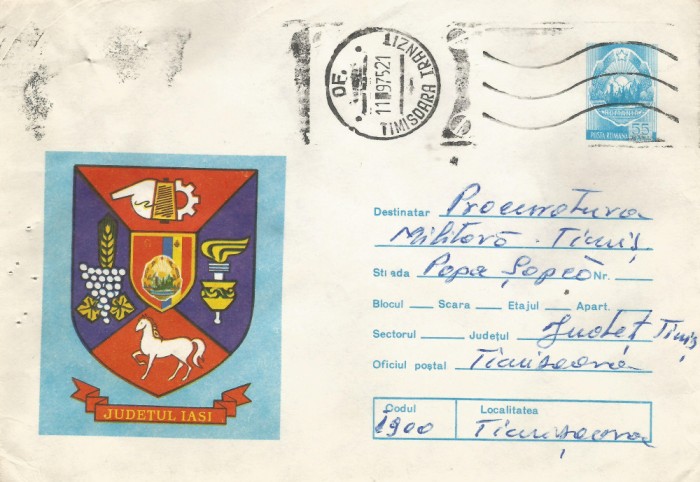 OF.
11.975 21
TIMISOARA TRANZIT
POSTA ROMANA
55
Destinatar Procuratura
Militară - Timiș
Strada Popa Șapcă Nr.
Blocul Scara Etajul Apart.
Sectorul Județul Județ Timiș
Oficiul poștal Timișoara
Codul Localitatea
1900 Timișoara
JUDETUL IASI